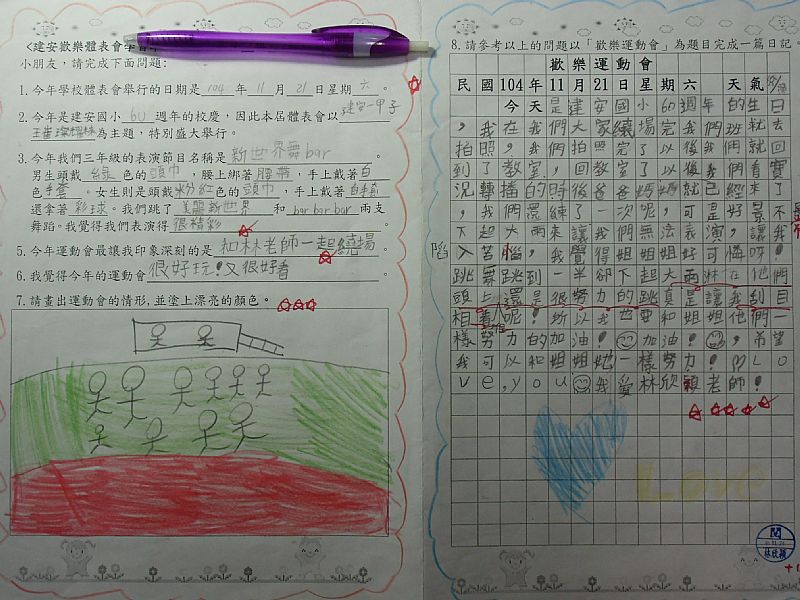 <建安歡樂體表會學習單
小朋友，請完成下面問題:
1.今年學校體表會舉行的日期是 104 年 11 月 21 日星期 六 。
2.今年是建安國小 60 週年的校慶，因此本屆體表會以 建安一甲子
為主題，特別盛大舉行。
3.今年我們三年級的表演節目名稱是 新世界舞bar
男生頭戴 綠 色的 頭巾 ，腰上綁著 腰帶 ，手上戴著 白
色 手套 。女生則是頭戴 粉紅 色的 頭巾 ，手上戴著 白手套
還拿著 彩球 。我們跳了 美麗新世界 和 bar bar bar 兩支
舞蹈。我覺得我們表演得 很精彩 。
5.今年運動會最讓我印象深刻的是 和林老師一起繞場
6.我覺得今年的運動會 很好玩!又很好看
7.請畫出運動會的情形,並塗上漂亮的顏色。
8.請參考以上的問題以「歡樂運動會」為題目完成一篇日記
歡樂運動會
民國104年11月21日星期六 天氣
今天是建安國小60週年的生日
，我在我們大家繞場完我們班就去
拍照，我們拍照完了以後我們就回
到了教室，回教室了以後我們看實
況轉播的時後爸爸媽媽就已經來了
，我們還練了一次呢，可是好景不
下起大雨來讓我們無法表演，讓我
陷入苦惱，我覺得姐姐好可憐呀!
跳舞跳到一半卻下起大雨淋在他們
頭上還是很努力的跳真是讓我刮目
相看呢!所以我也要和姐姐他們一
樣努力的加油!加油!，希望
我可以和姐姐她一樣努力!Lo
ve,you我愛林欣穎老師!
Love
閱
林欣穎
+1